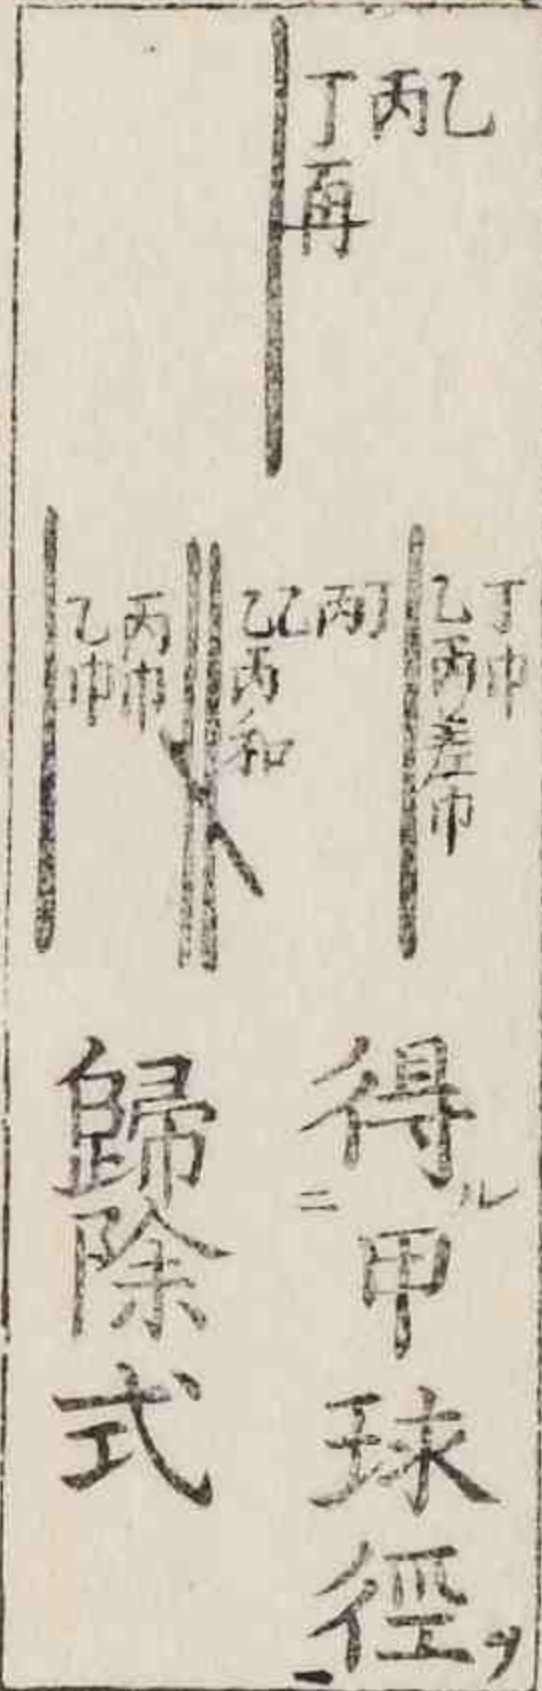 乙
丙
丁再
丁巾
乙丙差巾
丁
丙
乙
乙丙和
丙巾
乙巾
得ル二甲球徑ヲ一
歸除式